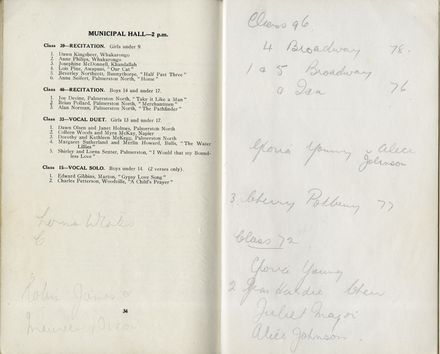 MUNICIPAL HALL—2 p.m.
Class 39—RECITATION. Girls under 9.
1. Dawn Kingsbeer, Whakarongo
2. Anne Philips, Whakarongo
3. Josephine McDonnell, Khandallah
4. Lois Pine, Awapuni, "Our Cat"
5. Beverley Northcott, Bunnythorpe, "Half Past Three"
6. Anne Seifert, Palmerston North, "Home"
Class 46—RECITATION. Boys 14 and under 17.
1. Joe Devine, Palmerston North, "Take it Like a Man"
2. Brian Pollard, Palmerston North, "Merchantmen"
3. Alan Norman, Palmerston North, "The Pathfinder"
Class 33—VOCAL DUET. Girls 13 and under 17.
1. Dawn Olsen and Janet Holmes, Palmerston North
2. Colleen Woods and Myra McKay, Napier
3. Dorothy and Kathleen McKegg, Palmerston North
4. Margaret Sutherland and Merlin Howard, Bulls, "The Water Lilies"
5. Shirley and Lorna Senter, Palmerston, "I Would that my Boundless Love"
Class 15—VOCAL SOLO. Boys under 14. (2 verses only).
1. Edward Gibbins, Marton, "Gypsy Love Song"
2. Charles Petterson, Woodville, "A Child's Prayer"
Lorna
34
Class 96
4 Broadway 78.
1 a 5 Broadway
76
Gloria Young Alice
Johnson
3 Cherry 77
Class 72
Gloria Young
2
Juliet Major
Alice Johnson.